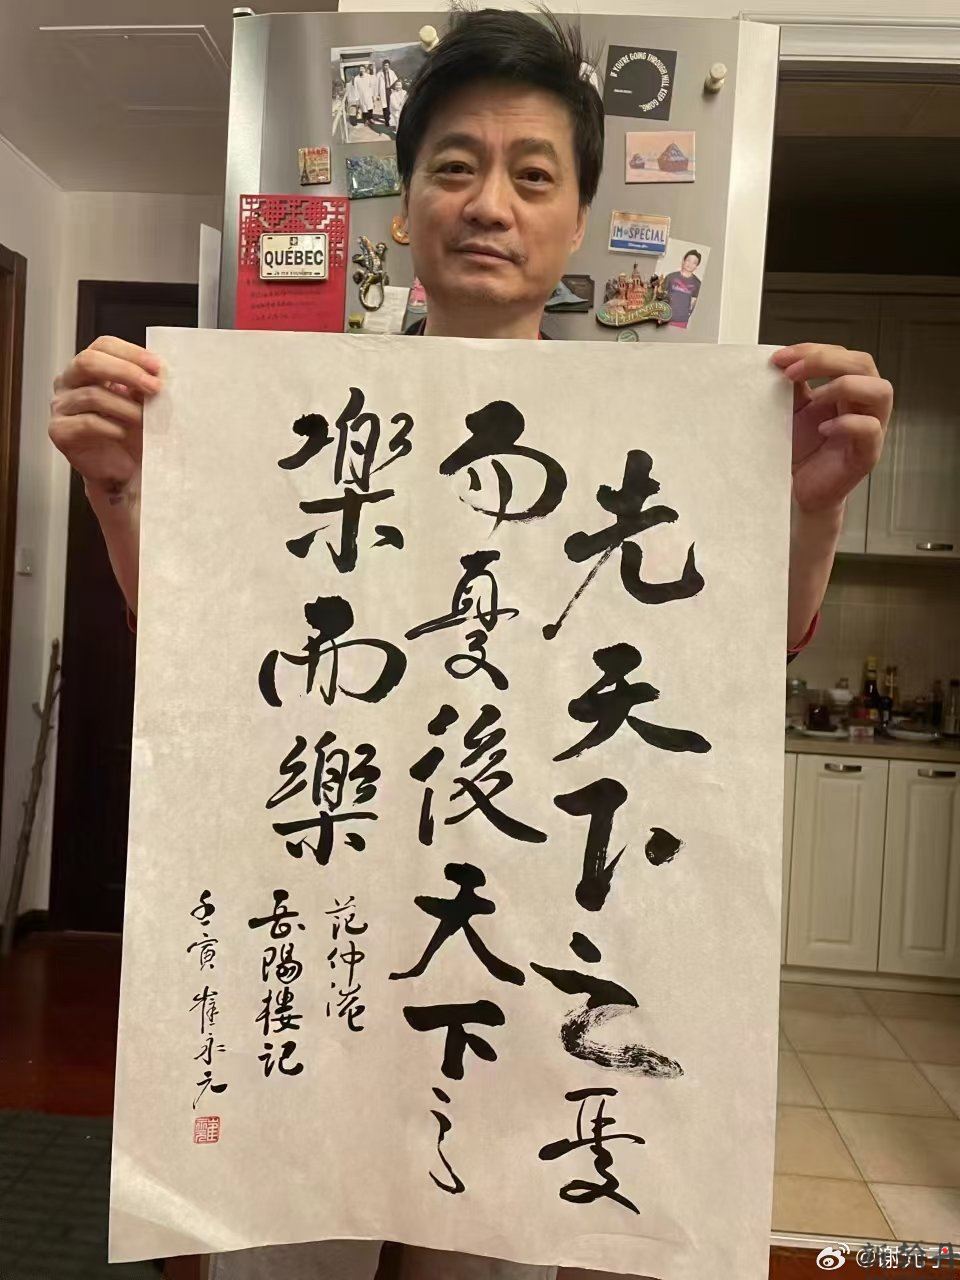 先天下之憂
而憂後天下之
樂而樂
范仲淹
岳陽樓記
壬寅 崔永元
IF YOU'RE GOING THROUGH HELL KEEP GOING
QUÉBEC
Je me souviens
IM SPECIAL